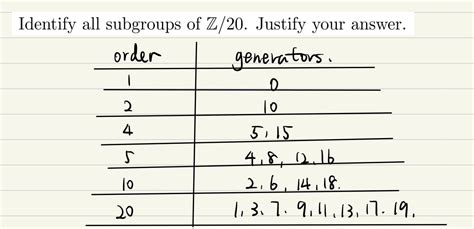 Identify all subgroups of ℤ/20. Justify your answer.
order generators.
1 0
2 10
4 5, 15
5 4, 8, 12, 16
10 2, 6, 14, 18.
20 1, 3, 7. 9, 11, 13, 17. 19.